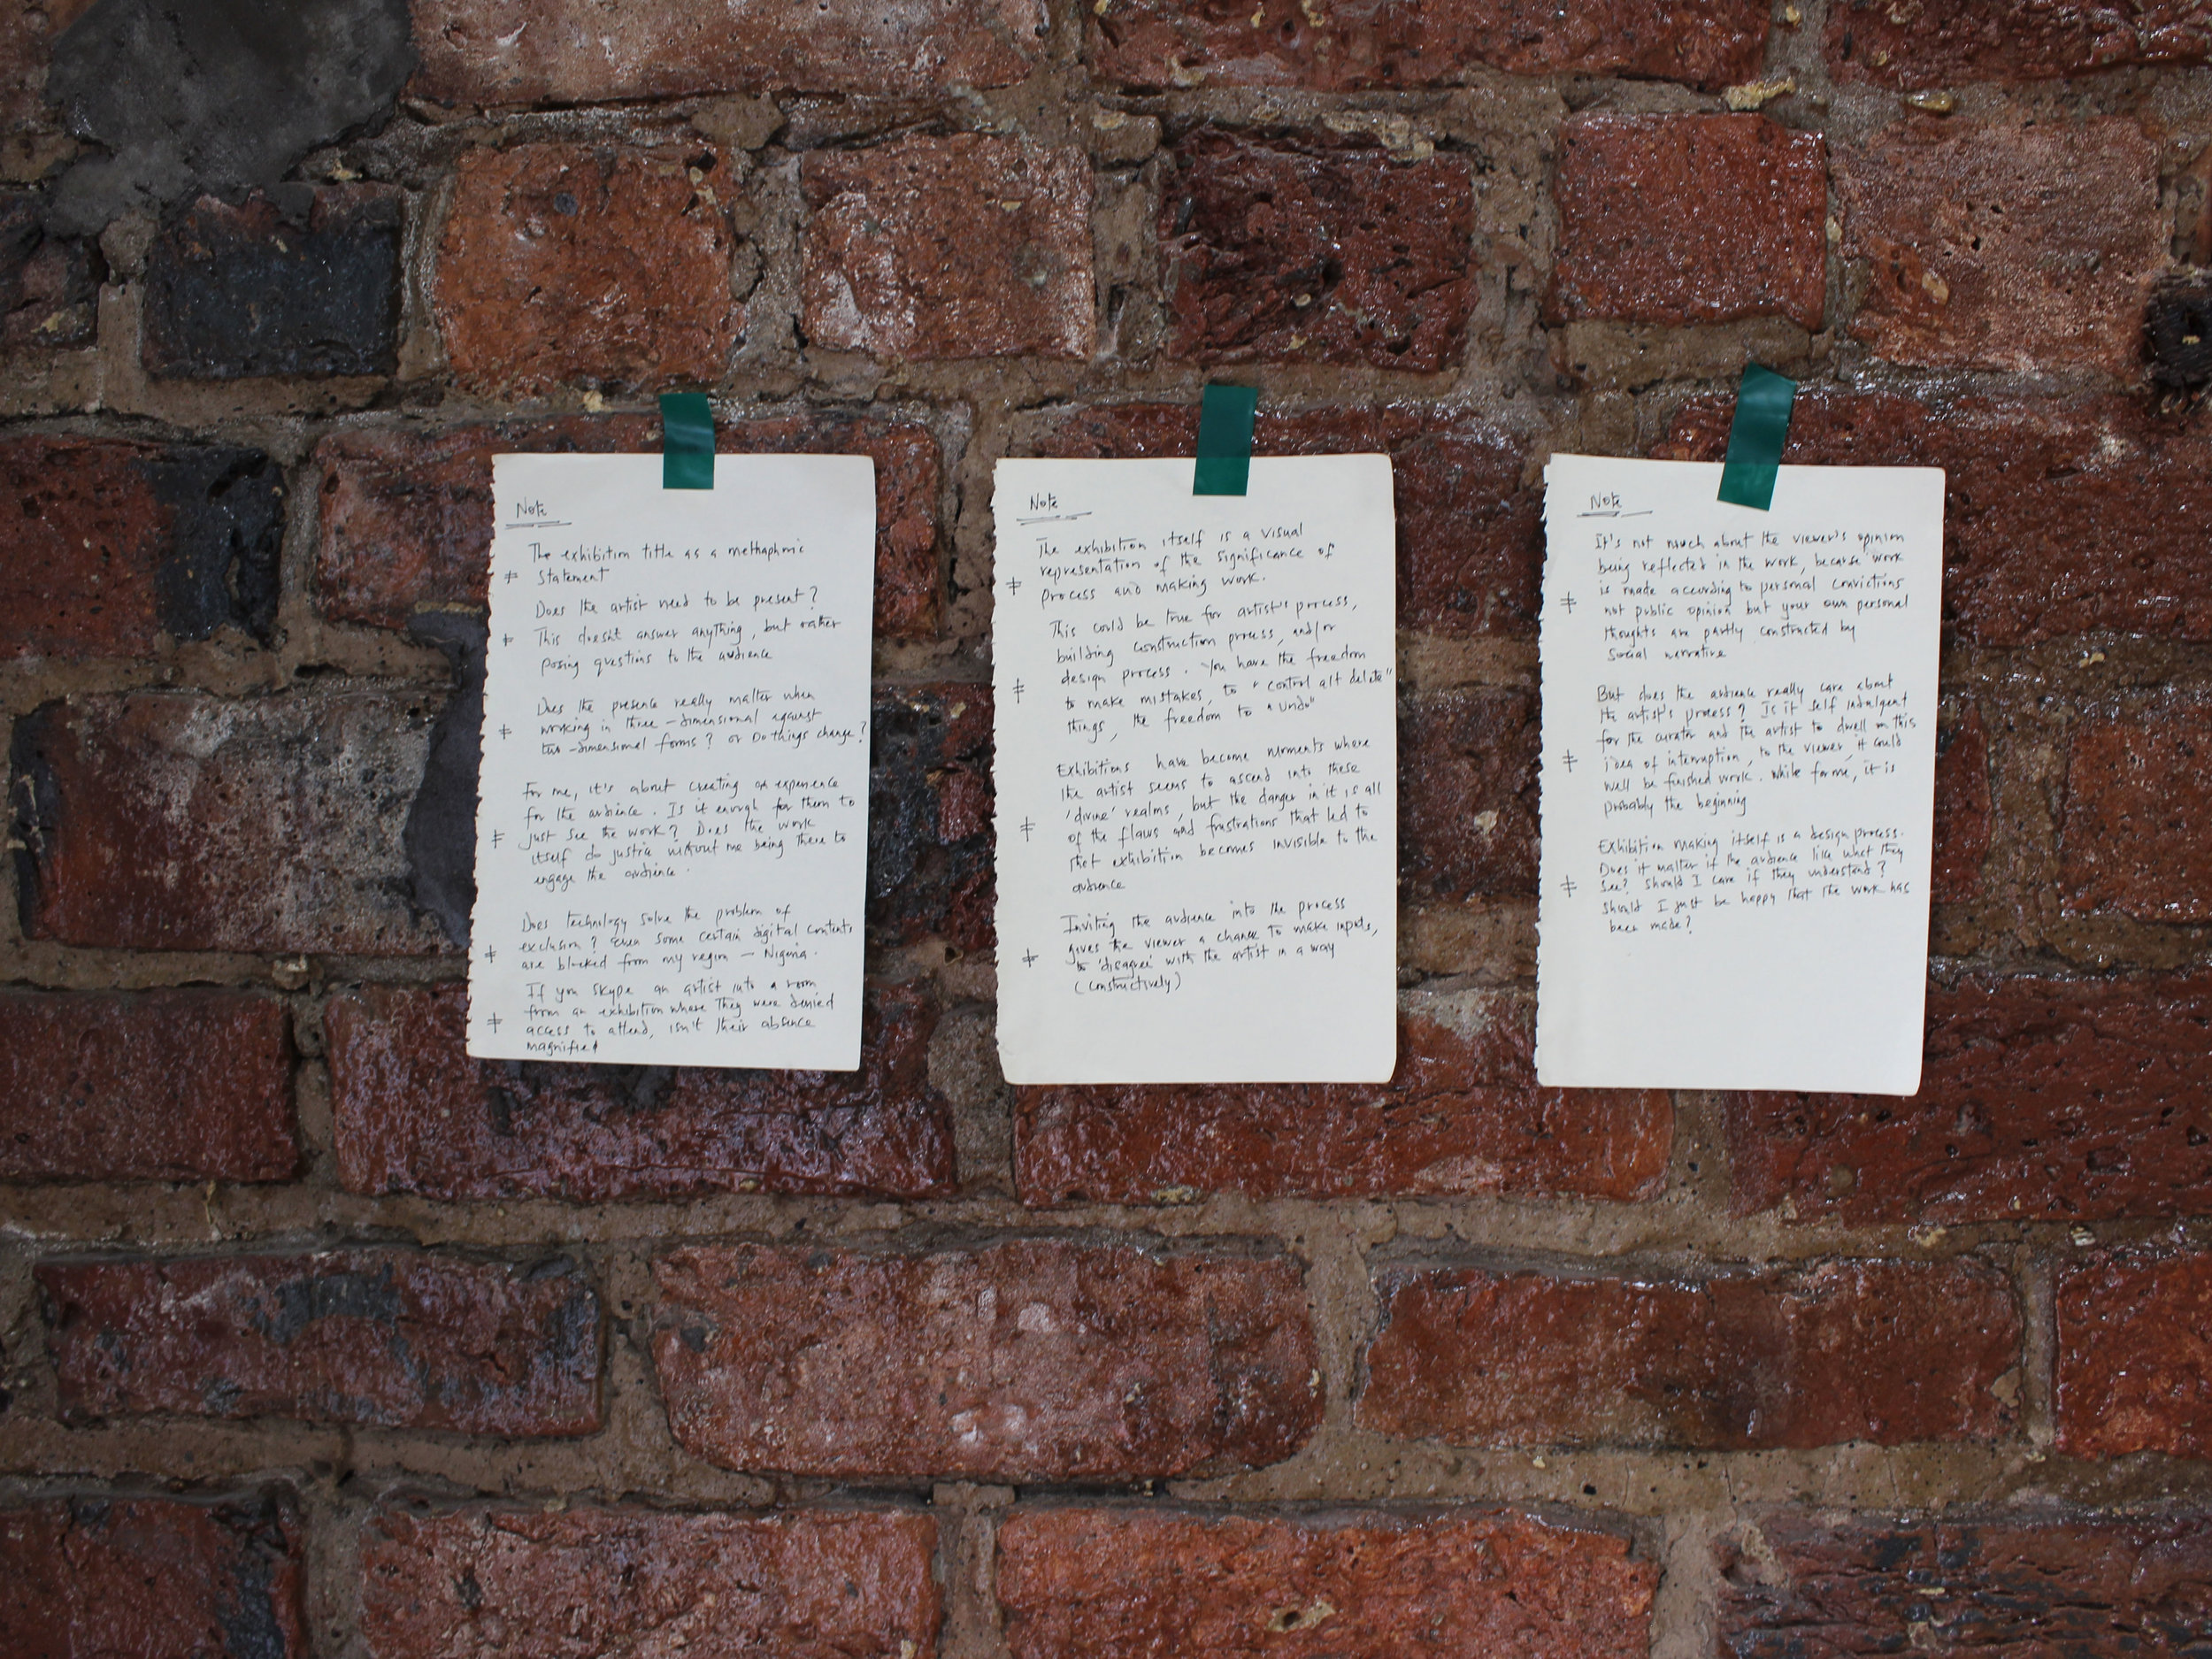 Note
The exhibition title as a methaphoric
‡ Statement
Does the artist need to be present?
‡ This doesn't answer anything, but rather
posing questions to the audience
Does the presence really matter when
‡ working in three-dimensional against
two-dimensional forms? or Do things change?
For me, it's about creating an experience
for the audience. Is it enough for them to
‡ just see the work? Does the work
itself do justice without me being there to
engage the audience.
Does technology solve the problem of
exclusion? Even some certain digital contents
‡ are blocked from my region – Nigeria.
If you skype an artist into a room
from an exhibition where they were denied
‡ access to attend, isn't their absence
magnified
Note
The exhibition itself is a visual
representation of the significance of
‡ process and making work.
This could be true for artist's process,
building construction process, and/or
design process. You have the freedom
‡ to make mistakes, to "control alt delete"
things, the freedom to "undo"
Exhibitions have become moments where
the artist seems to ascend into these
'divine' realms, but the danger in it is all
‡ of the flaws and frustrations that led to
that exhibition becomes invisible to the
audience
Inviting the audience into the process
gives the viewer a chance to make inputs,
‡ to 'disagree' with the artist in a way
(constructively)
Note
It's not much about the viewer's opinion
being reflected in the work, because work
is made according to personal convictions
‡ not public opinion but your own personal
thoughts are partly constructed by
social narrative
But does the audience really care about
the artist's process? Is it self indulgent
for the curator and the artist to dwell on this
‡ idea of interruption, to the viewer, it could
well be finished work. While for me, it is
probably the beginning
Exhibition making itself is a design process.
Does it matter if the audience like what they
‡ see? Should I care if they understand?
Should I just be happy that the work has
been made?